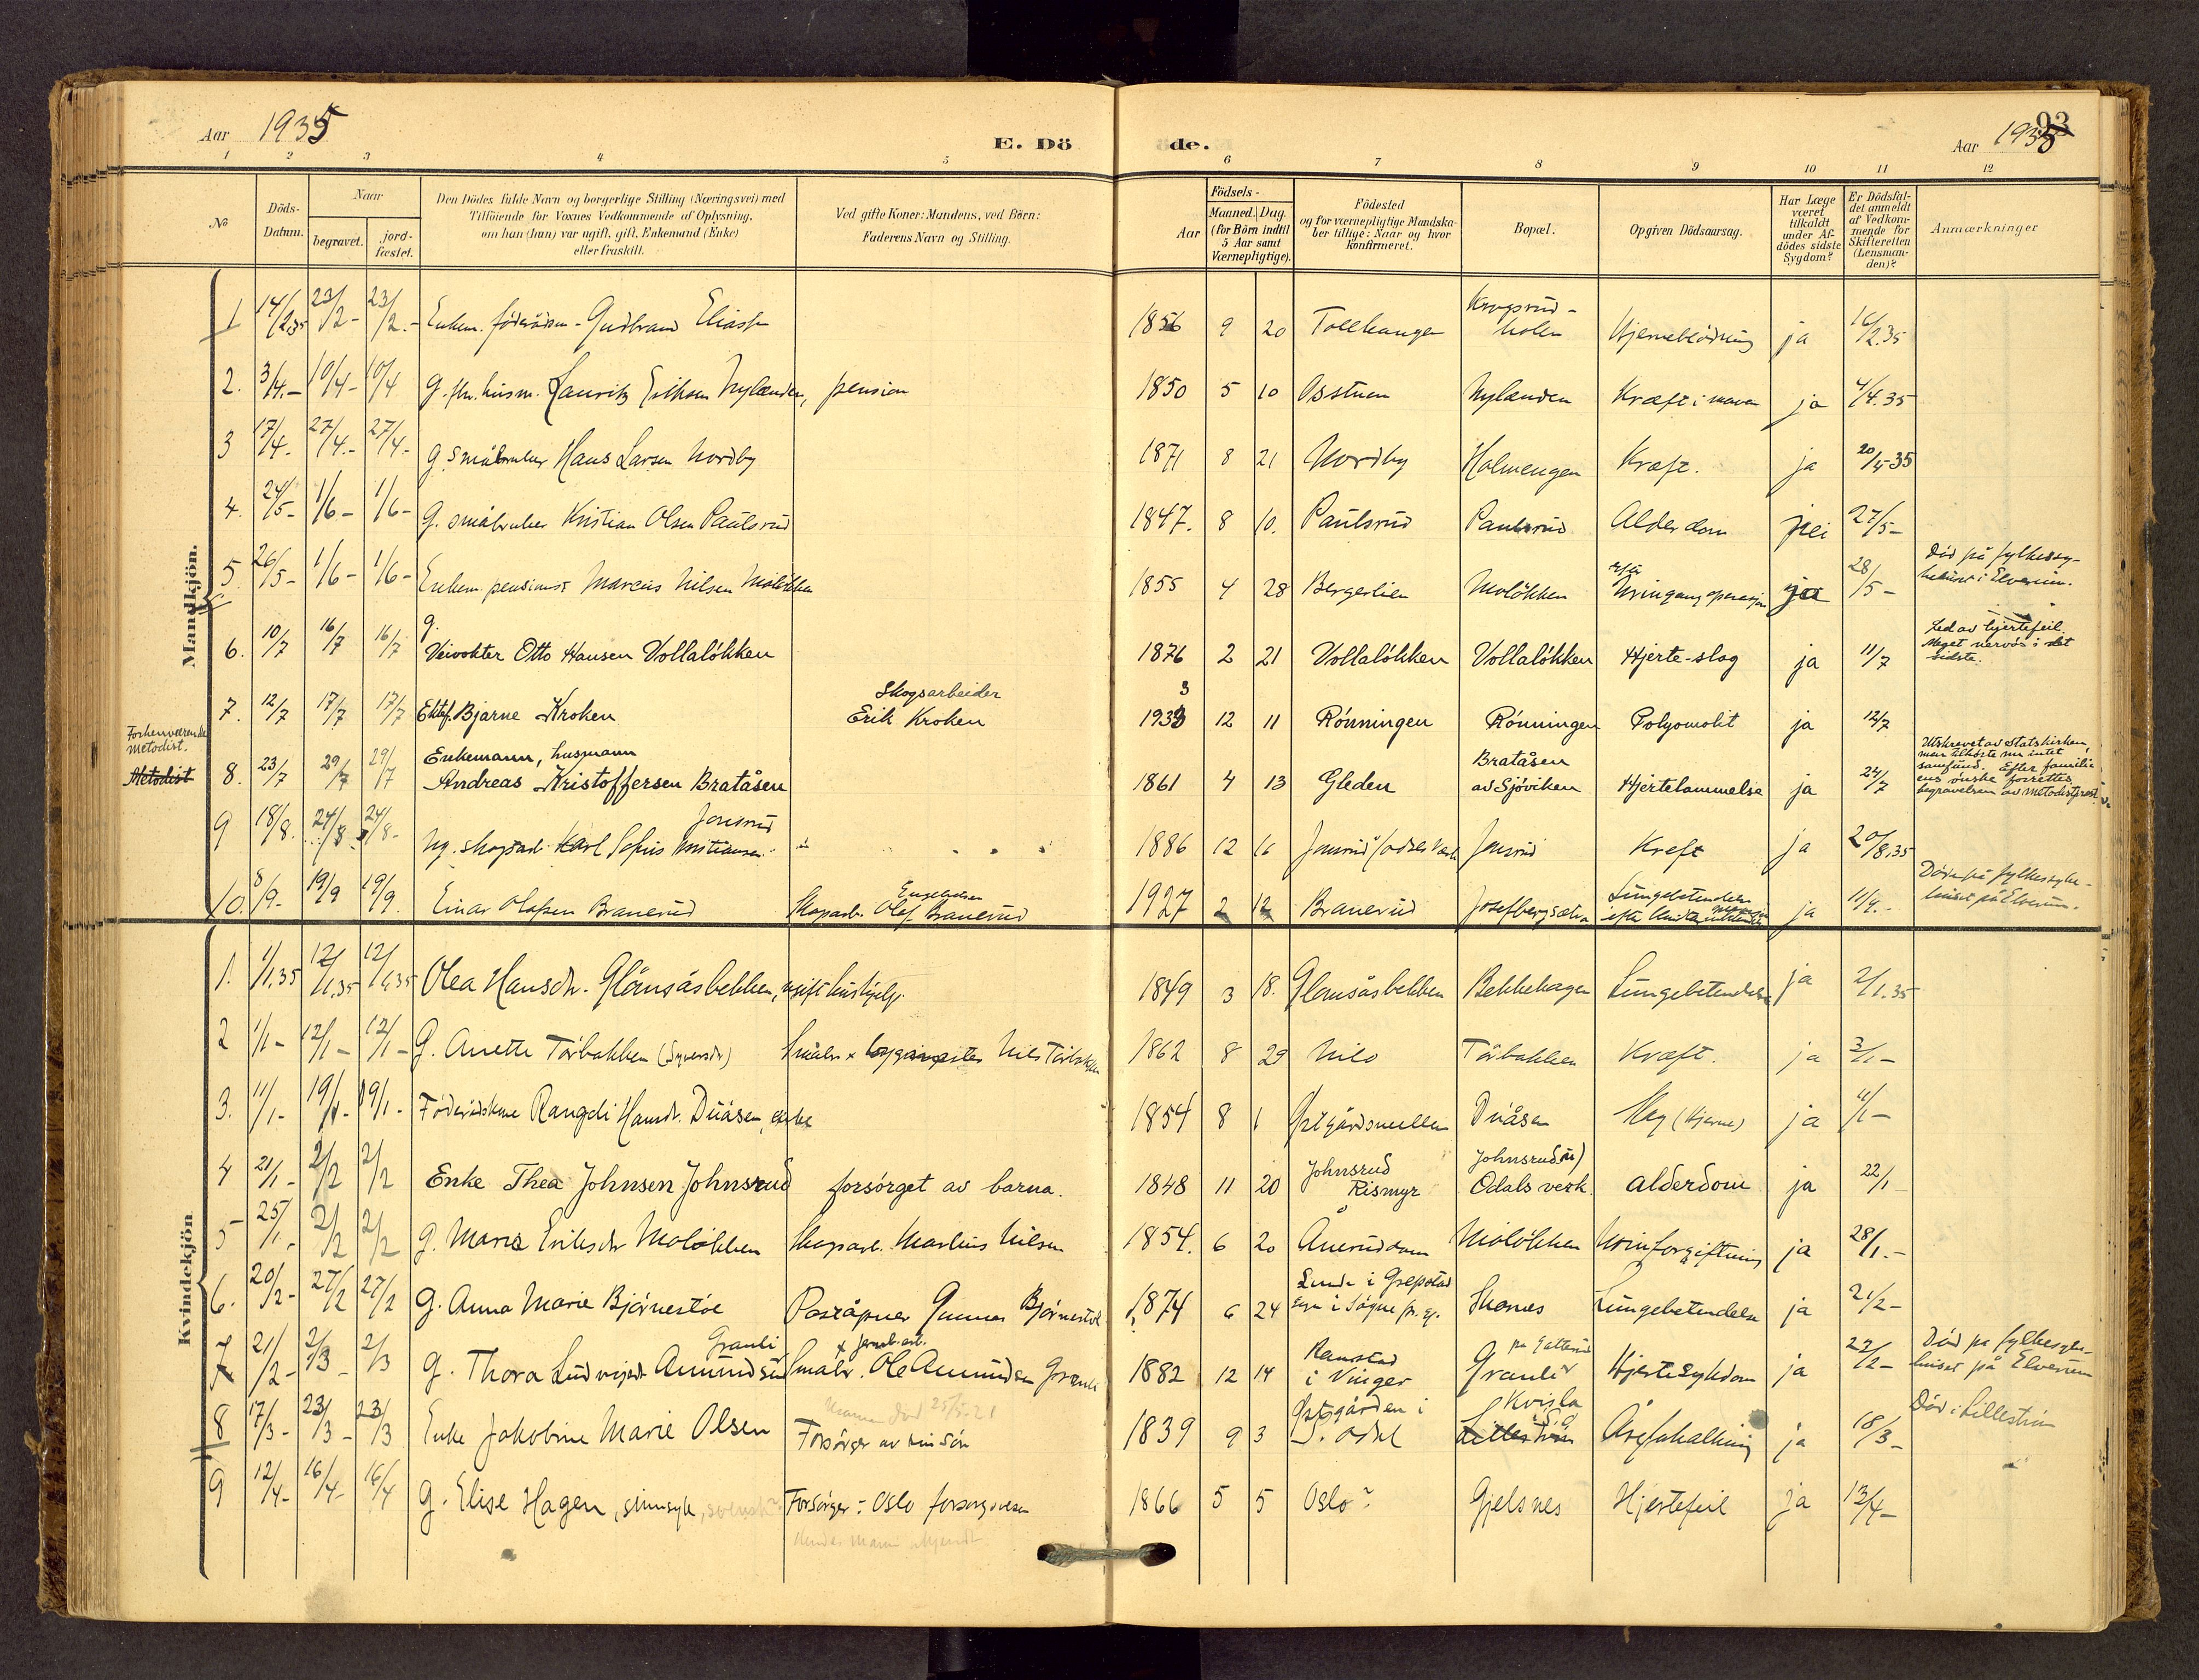 Aar 1935
E. Dö
de.
93
Aar 1935
1 2 3 4 5 6 7 8 9 10 11 12
No
Döds-Datum.
Naar
begravet.
jord-fæstet.
Den Dödes fulde Navn og borgerlige Stilling (Næringsvei) med
Tilföiende for Voxnes Vedkommende af Oplysning,
om han (hun) var ugift, gift, Enkemand (Enke)
eller fraskilt.
Ved gifte Koner: Mandens, ved Börn:
Faderens Navn og Stilling.
Födsels-
Aar
Maaned. Dag.
(for Börn indtil
5 Aar samt
Værnepligtige).
Födested
og for værnepligtige Mandska-
ber tillige: Naar og hvor
konfirmeret.
Bopæl.
Opgiven Dödsaarsag.
Har Læge
været
tilkaldt
under Af-
dödes sidste
Sygdom?
Er Dödsfal-
det anmeldt
af Vedkom-
mende for
Skifteretten
(Lensman-
den)?
Anmærkninger
Mandkjön.
1 14/2 35 23/2- 23/2.- Enkem. föderådsm- Gudbrand Eliass 1856 9 20 Tollhaugen Krogsrud-holen Hjerneblödning ja 16/2.35
2. 3/4.- 10/4- 10/4 G. fhv. husm. Lauritz Eriksen Nylænden, pension 1850 5 10 Osstuen Nylænden Kræft i maven ja 4/4.35
3 17/4- 27/4.- 27/4- G småbruker Hans Larsen Nordby 1871 8 21 Nordby Holmengen Kræft. ja 20/4-35
4. 24/5- 1/6- 1/6- G. småbruker Kristian Olsen Paulsrud 1847. 8 10. Paulsrud Paulsrud Alderdom nei 27/5-
5. 26/5- 1/6- 1/6- Enkem. pensionist Marcus Nilsen Moløkken 1855 4 28 Bergerlien Moløkken efter Uringang operasjon ja 28/5- Död på fylkessy-
kehuset i Elverum.
6. 10/7 16/7 16/7 g. Veivokter Otto Hansen Vollalökken 1876 2 21 Vollalökken Vollalökken Hjerte-slag ja 11/7 Led av hjertefeil.
Meget nervös i det
sidste.
7. 12/7 17/7 17/7 Ektef. Bjarne Kroken Skogsarbeider
Erik Kroken 1933 12 11 Rönningen Rönningen Polyomolit ja 12/7
Forhenværende
metodist.
Metodist 8. 23/7 29/7 29/7 Enkemann, husmann
Andreas Kristoffersen Bratåsen 1861 4 13 Gleden Bratåsen
av Sjöviken Hjertelammelse ja 24/7 Utskrevet av Statskirken,
men tilhörte nu intet
samfund. Efter familie
ens önske forrettes
begravelsen av metodistprest.
9 18/8. 24/8- 24/8- Ug. skogsarb. Karl Sofus Kristiansen Jonsrud 1886 12 16 Jonsrud Odals Verk Jonsrud Kreft ja 20/8.35
10. 8/9- 19/9 19/9. Einar Olafsen Branerud Skogsarb. Olaf Engebretsen Branerud 1927 2 12 Branerud Josefbergsætra Lungebetendelse
efter ja 11/9.- Döde på fylkessyke-
huset på Elverum.
Kvindekjön
1. 1/1.35 12/1.35 12/1.35 Olea Hansdtr. Glåmsåsbekken, ugift hushjelp. 1849 3 18. Glomsåsbekken Bekkehagen Lungebetendelse ja 2/1.35
2 1/1- 12/1- 12/1- G. Anette Torbakken (Syversdtr) Småbr. x bygningsarb Nils Torbakken 1862 8 29 Nilo Torbakken Kræft. ja 3/1-
3. 11/1- 19/1- 19/1- Föderådskone Rangdi Hansdtr. Duåsen, enke 1854 8 1 Duåsen Slag (Hjerne) ja 11/1-
4 21/1- 2/2 2/2 Enke Thea Johnsen Johnsrud forsörget av barna. 1848 11 20 Johnsrud
Rismyr Johnsrud
Odals verk. alderdom ja 22/1-
5 25/1- 2/2 2/2 G. Marie Eriksdtr Moløkken Skogsarb. Markus Nilsen 1854. 6 20 Auruddam Moløkken Urinforgiftning ja 28/1.-
6. 20/2- 27/2 27/2 G. Anna Marie Bjørnestøe Poståpner Gunnar Bjørnestøe 1874 6 24 Lunde i Grepstad
sogn i Søgne pr.gj. Skarnes Lungebetendelse ja 21/2-
7 21/2- 2/3- 2/3 G. Thora Ludvigsdtr Amundsen Granli Småbr. x jernb.arb. Ole Amundsen Granli 1882 12 14 Ramstad
i Vinger Granli på Galterud Hjertesykdom ja 22/2- Död på fylkessyke-
huset på Elverum
8 17/3- 23/3- 23/3 Enke Jakobine Marie Olsen Mannen död 25/5-21
Forsörges av sin sön 1839 9 3 S. Odal Kvisla
S.O.
Lilleström Åreforkalkning ja 18/3- Död i Lilleström
9 12/4- 16/4- 16/4 G. Elise Hagen, sinnsyk, svensk? Forsörger: Oslo forsorgsvesen
Hendes mann ukjendt. 1866 5 5 Oslo? Gjelsnes Hjertefeil ja 13/4-